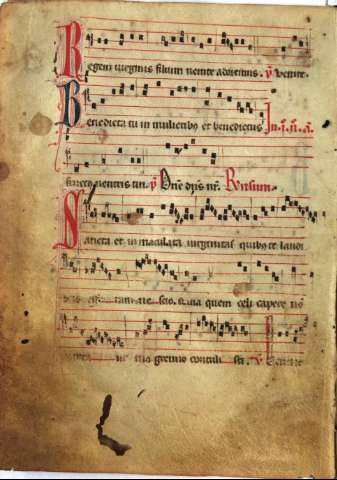 Regem virginis filium venite adoremus. ps Venite.
Benedicta tu in mulieribus et benedictus In. i. n. a.
fructus ventris tui. ps Domine dominus noster. Responsum.
Sancta et inmaculata virginitas quibus te laudi
bus efferam nescio. quia quem celi capere non
tuo gremio contuli sti. V Bene